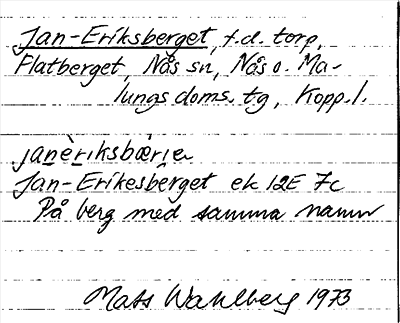 Jan-Eriksberget, f.d. torp,
Flatberget, Nås sn, Nås o. Ma-
lungs doms. tg, Kopp. l.
janèriksbærjeṛ
Jan-Erikesberget ek 12E 7c
På berg med samma namn
Mats Wahlberg 1973